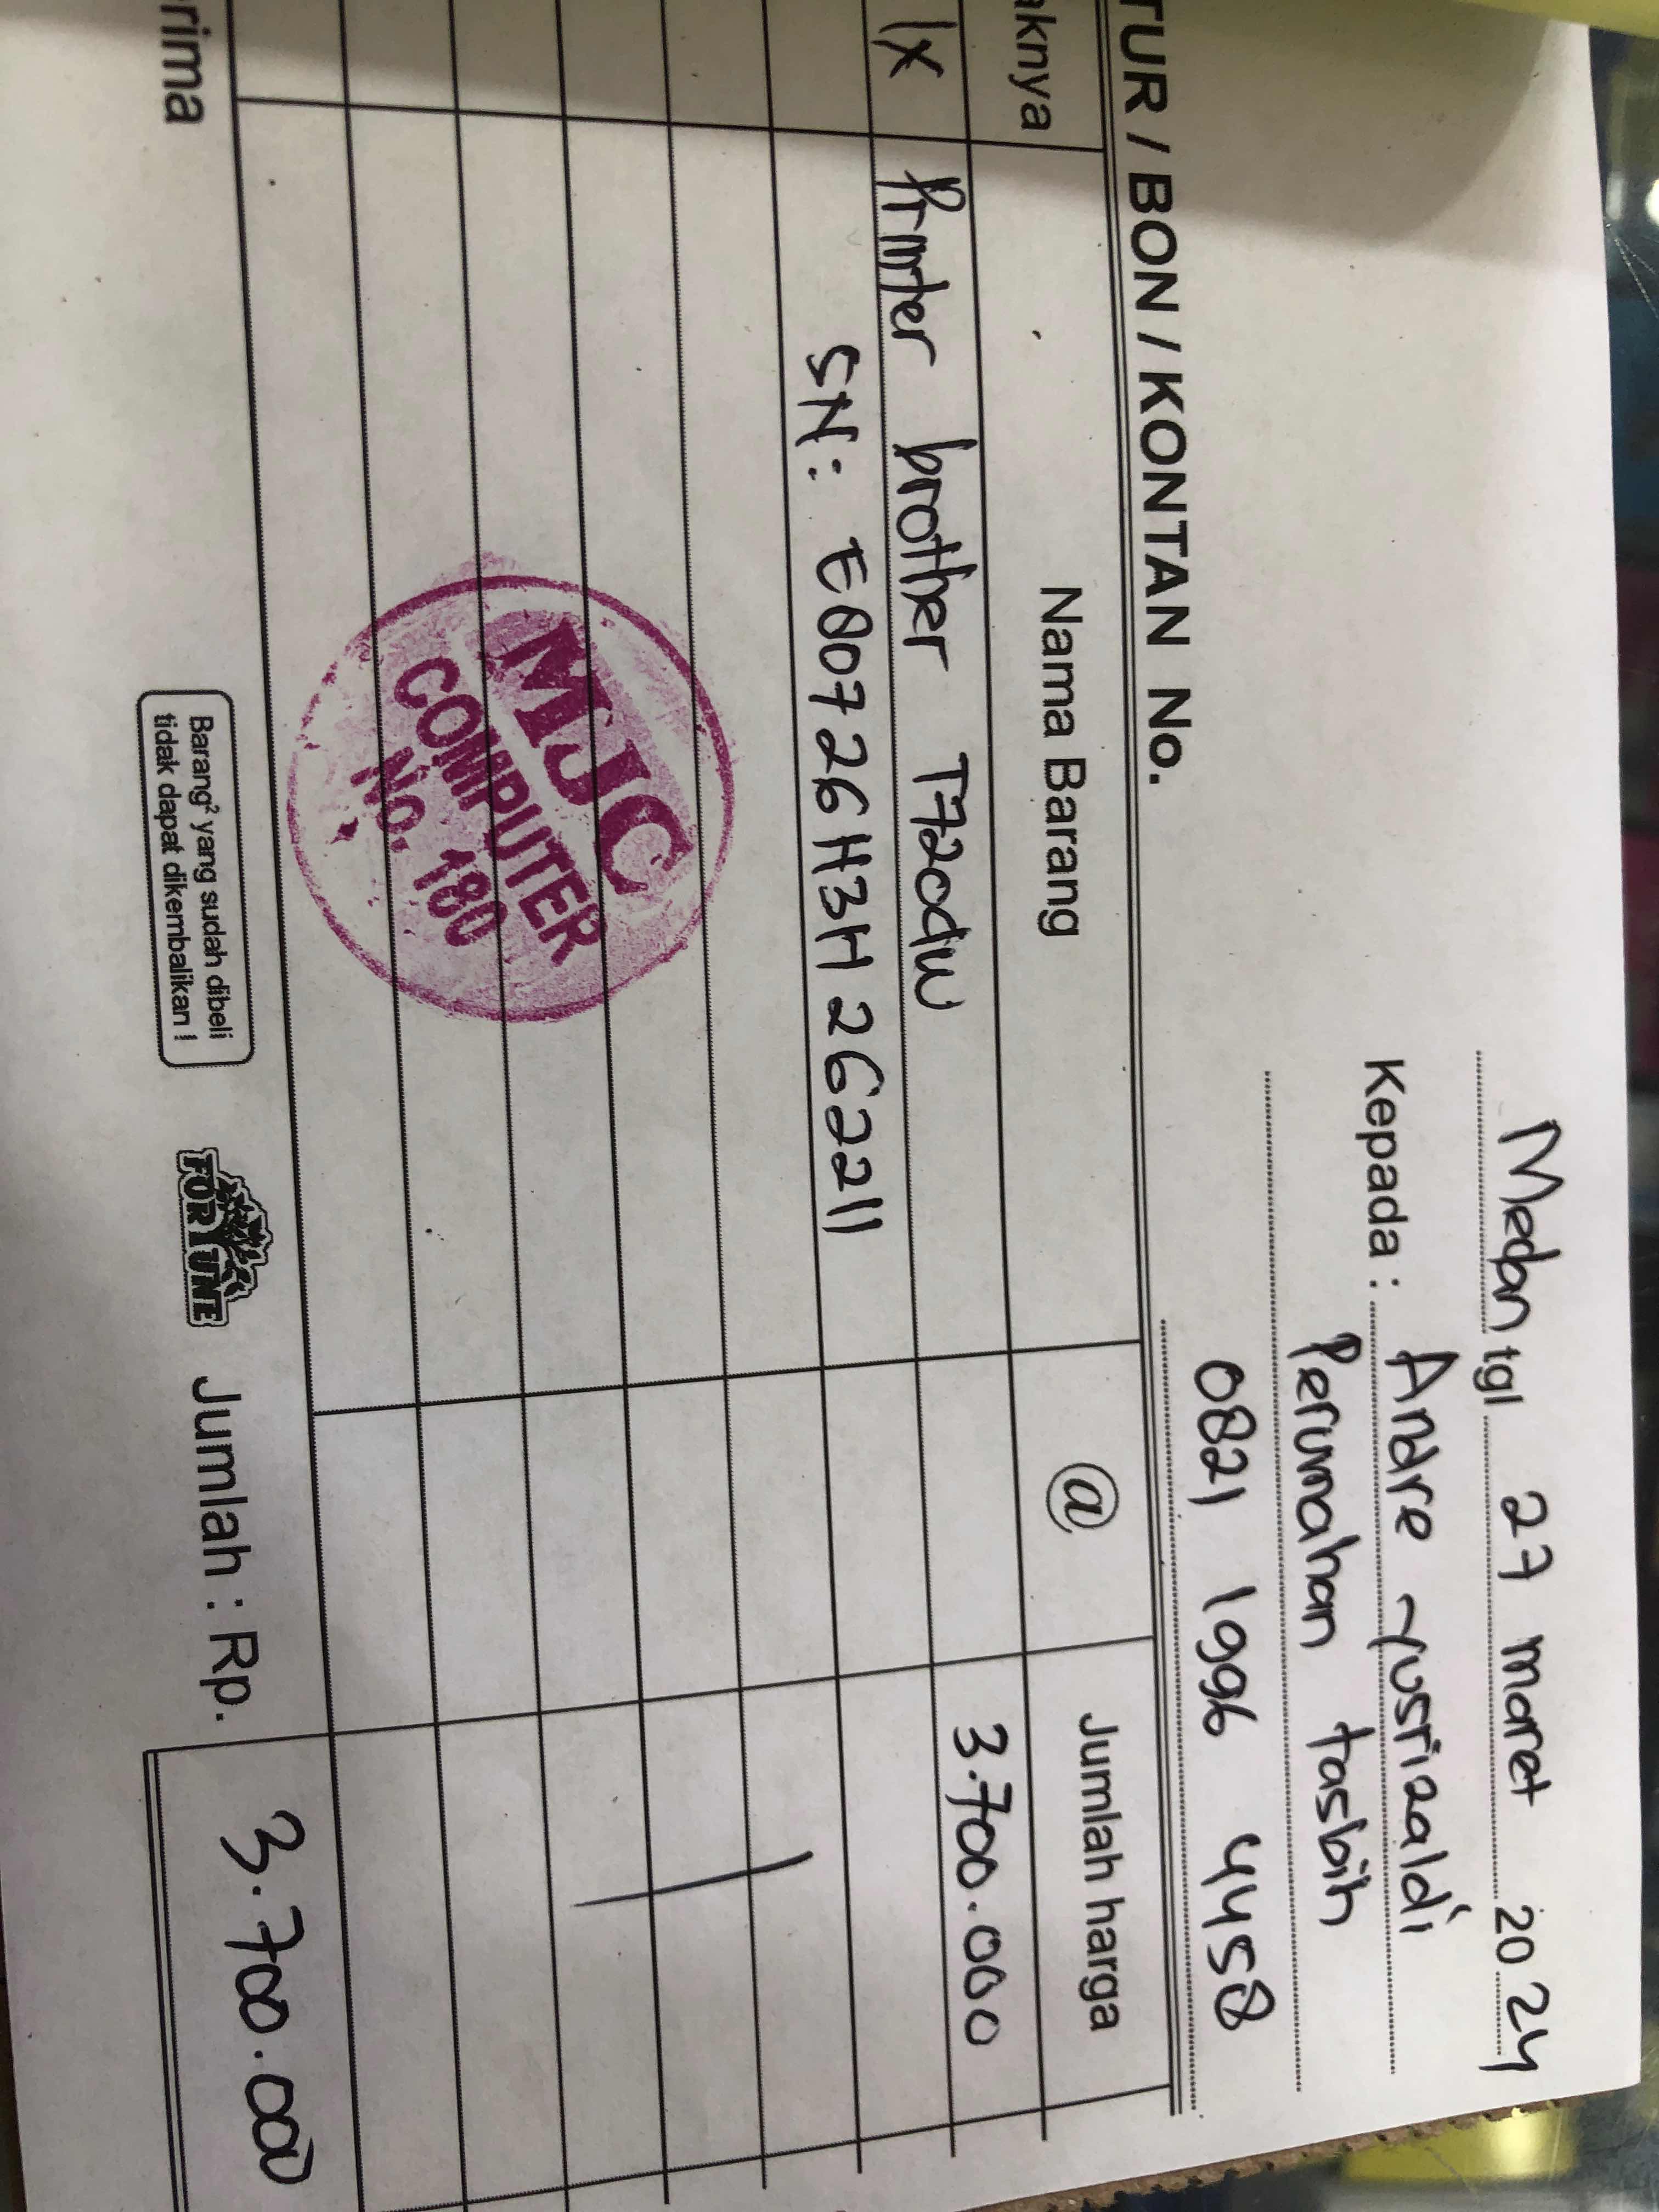 Medan tgl 27 maret 2024
Kepada : Andre Yusrizaldi
Perumahan tasbih
0821 1996 4458
TUR / BON / KONTAN No.
aknya Nama Barang @ Jumlah harga
1x Printer brother T720dw 3.700.000
SN: E80726H3H262211
MJC
COMPUTER
No. 180
rima
Barang² yang sudah dibeli
tidak dapat dikembalikan !
FORTUNE
Jumlah : Rp. 3.700.000